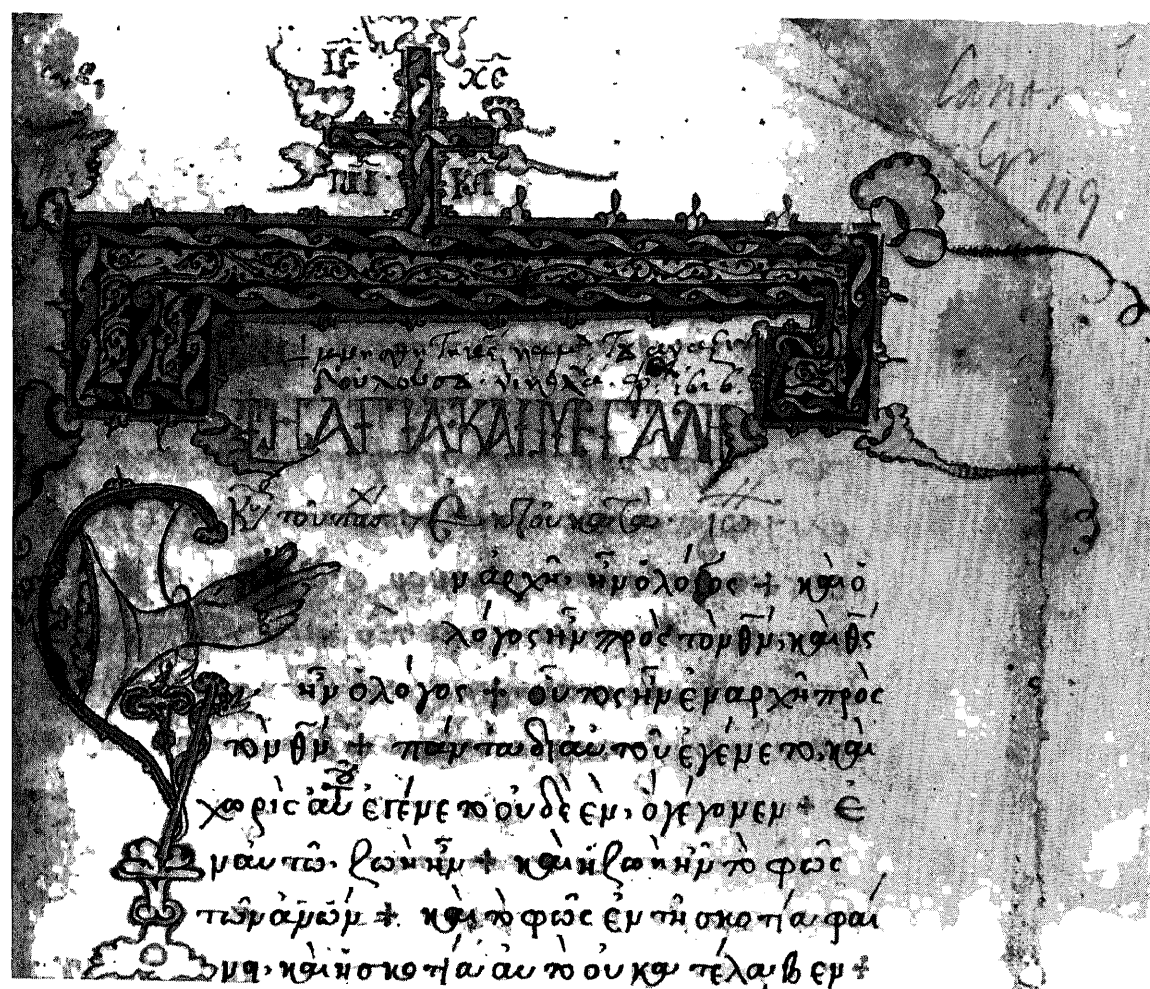 ῙC̄ X̄C̄
ΝΙ ΚΑ
Canon
Gr
119
1626
ΤΗ ΑΓΙΑ ΚΑΙ ΜΕΓΑΛΗ
Κυ τοῦ πασχ
ν ἀρχῆ· ἦν ὁ λόγος + καὶ ὁ
λόγος ἦν πρὸς τὸν θ̅ν̅, καὶ θ̅ς̅
ἦν ὁ λόγος + οὗτος ἦν ἐν αρχῆ πρὸς
τὸν θ̅ν̅ + πάντα δι αὐτοῦ ἐγένετο, καὶ
χωρὶς αὐτοῦ ἐγένετο οὐδὲ ἐν, ὁ γέγονεν + ἐ
ν αὐτῶ· ζωὴ ἦν + καὶ ἡ ζωὴ ἦν τὸ φῶς
τῶν ἀν̅ω̅ν + καὶ τὸ φῶς ἐν τῆ σκοτία φαί
νει, καὶ ἡ σκοτία αὐτὸ οὐ κατέλαβεν +